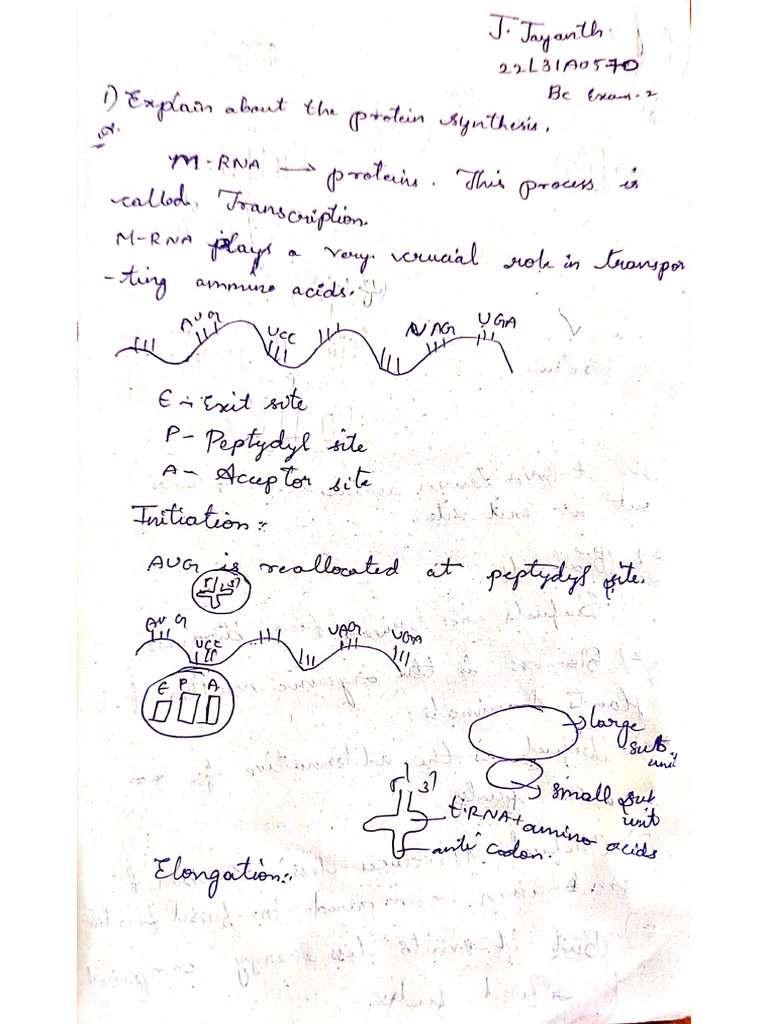 J. Jayanth.
22L31A0570
Bc Exam-2
1) Explain about the protein synthesis.
M-RNA → proteins. This process is
called. Transcription.
M-RNA plays a very. crucial role in transpor
-ting ammino acids.
AUG UCC UAG UGA
E - Exit site
P - Peptydyl site
A - Acceptor site
Initiation:-
AUG is reallocated at peptydyl site.
AUG UCC UAG UGA
E P A
large
sub
unit
small sub
unit
t.RNA+amino acids
anti codon.
Elongation:-